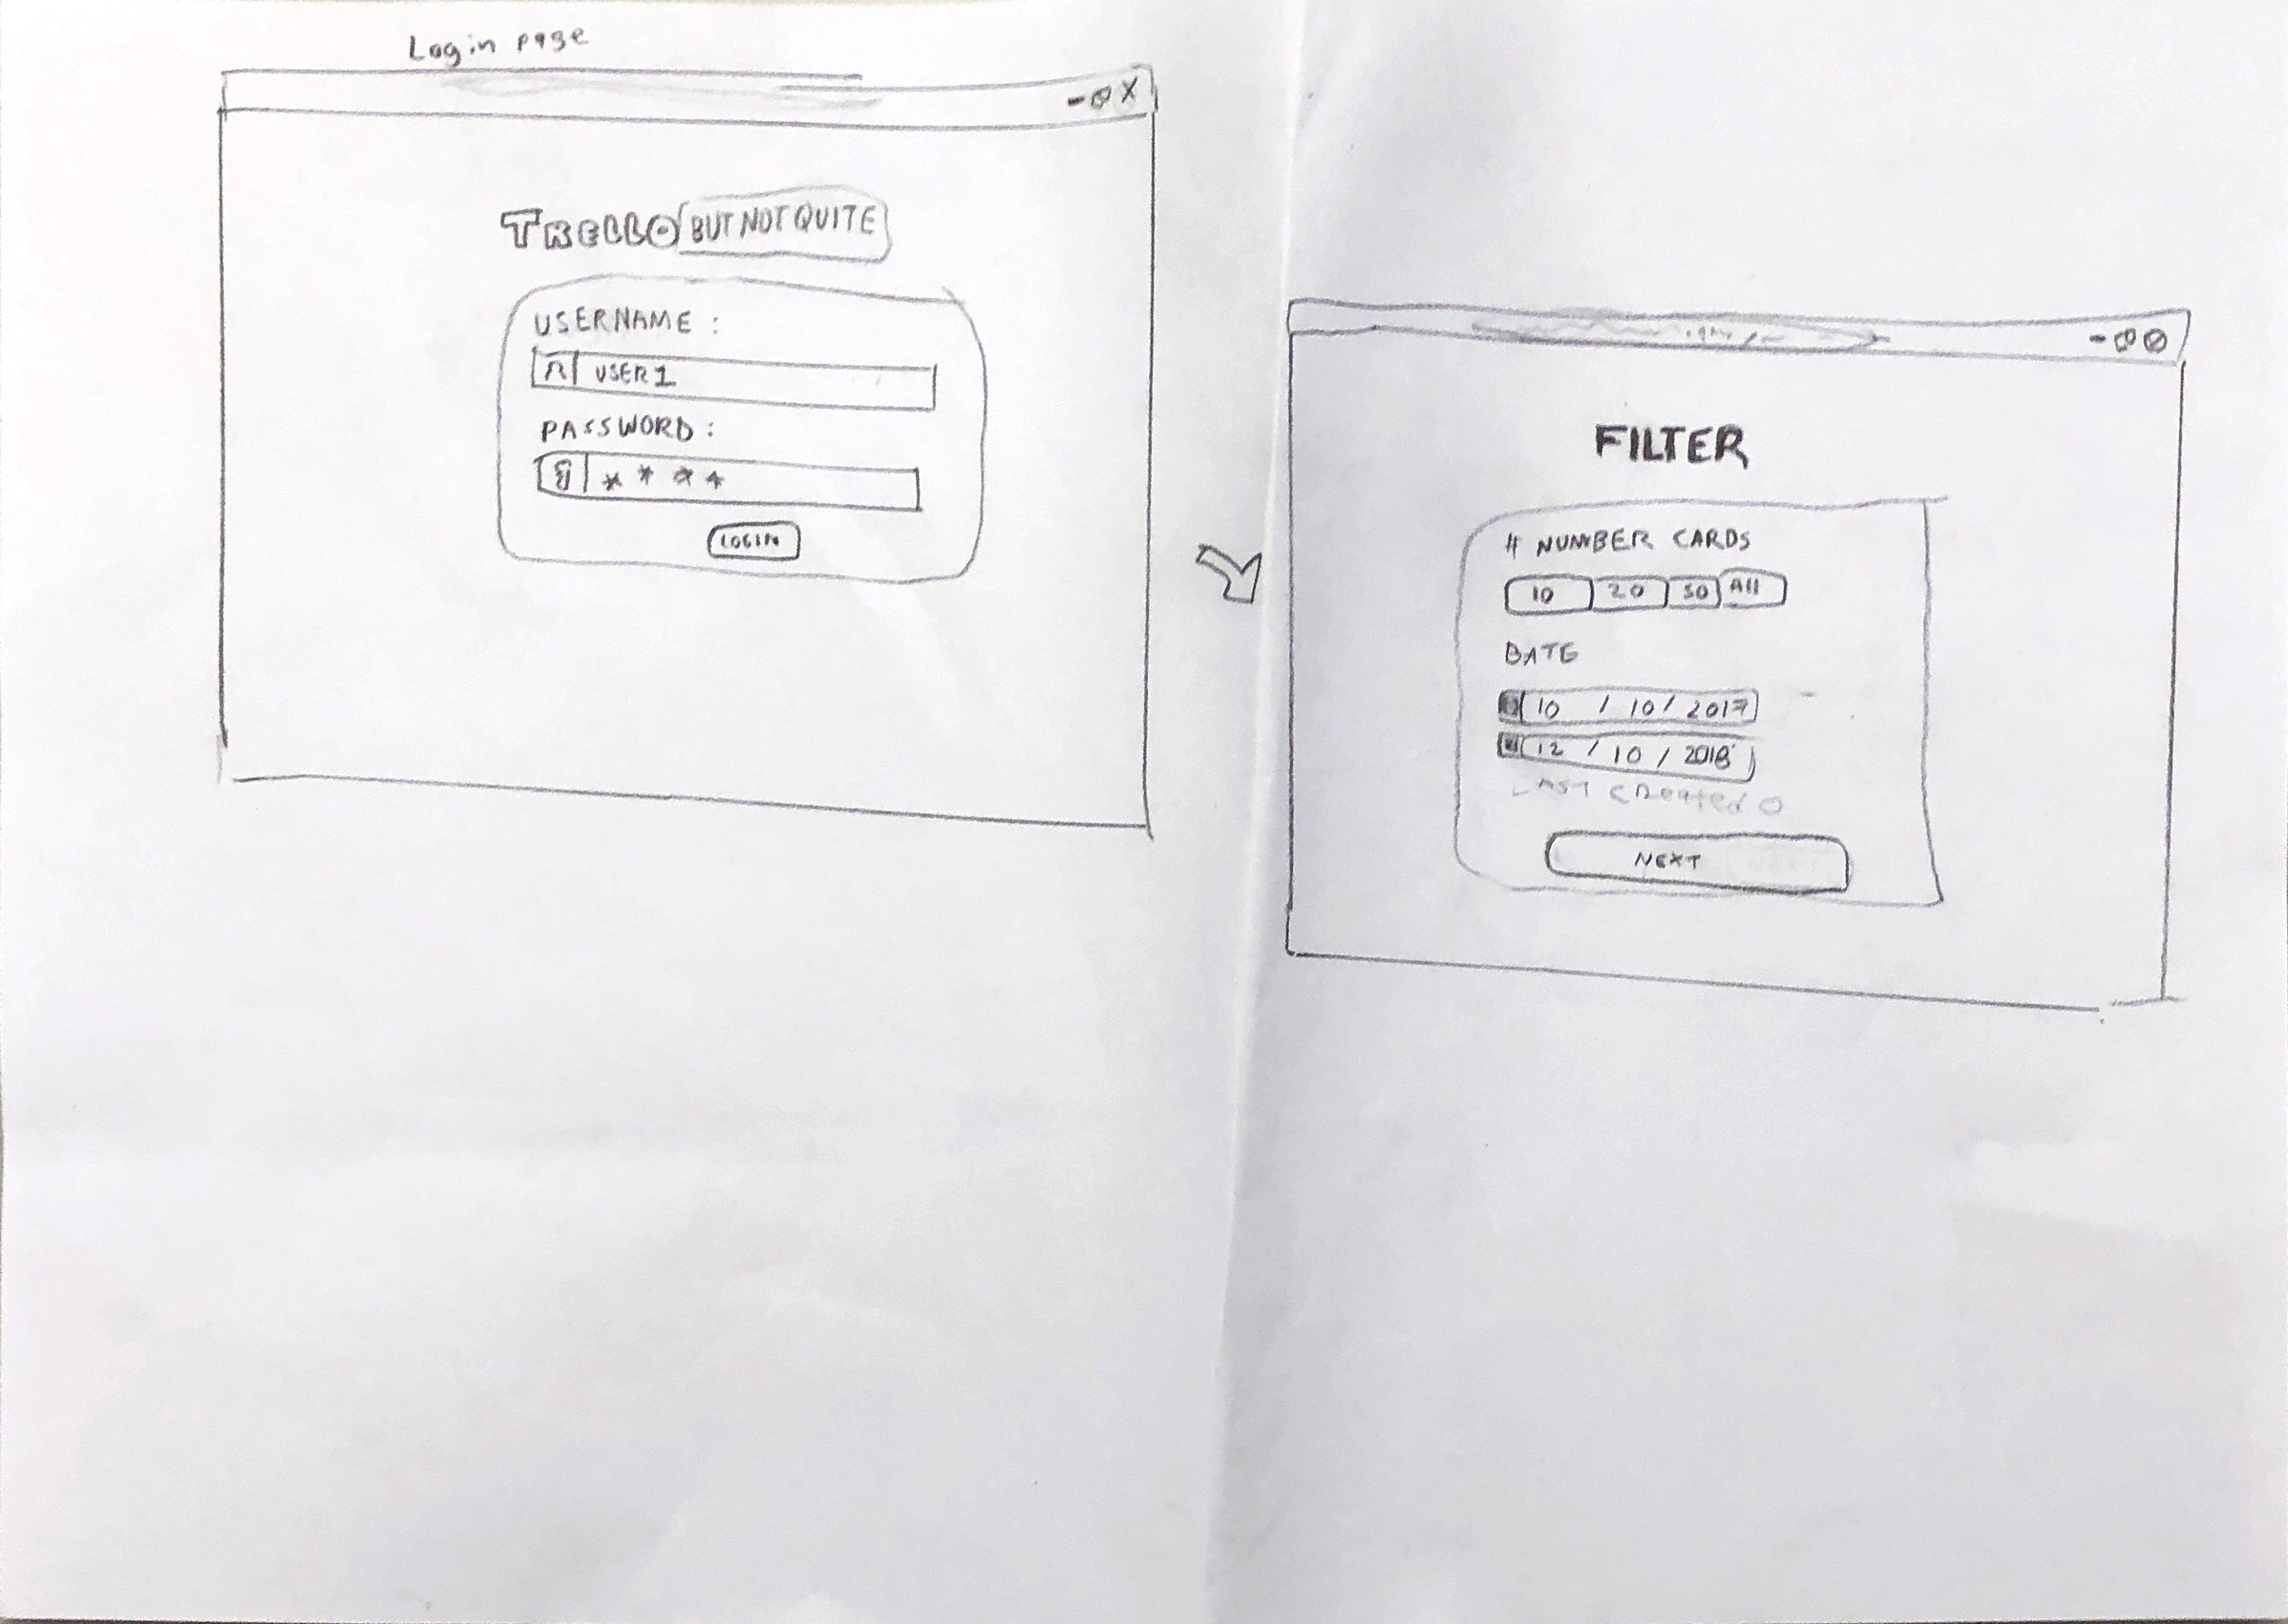 Login page
- o X
TRELLO BUT NOT QUITE
USERNAME :
USER 1
PASSWORD :
* * * *
LOGIN
FILTER
# NUMBER CARDS
10 20 50 All
DATE
10 / 10 / 2017
12 / 10 / 2018
LAST created O
NEXT